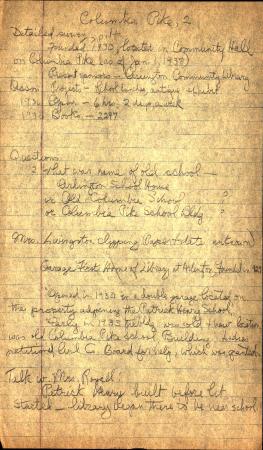 Columbia Pike, 2
Detailed survey, p. 14
Founded 1930, located in Community Hall
on Columbia Pike (as of Jan 1, 1938)
Present sponsors - Arlington Community Library
Assn. Project - School lunches, antique exhibit
1936 Open - 6 hrs. 2 days a week
1936 Books - 2297
Questions
? What was name of old school -
Arlington School House
or Old Columbia School "
or Columbia Pike School Bldg "
Mrs. Livingston clipping (Paper & date unknown)
Garage First Home of Library at Arlington, Founded in
"Opened in 1930 in a double garage located on
the property adjoining the Patrick Henry School.
Early in 1935 bldg was sold & new location
was old Columbia Pike School Building. Ladies
petitioned Arl. C. Board for help, which was granted.
Talk w. Mrs. Royall
Patrick Henry built before lib.
started - library began there to be near school.